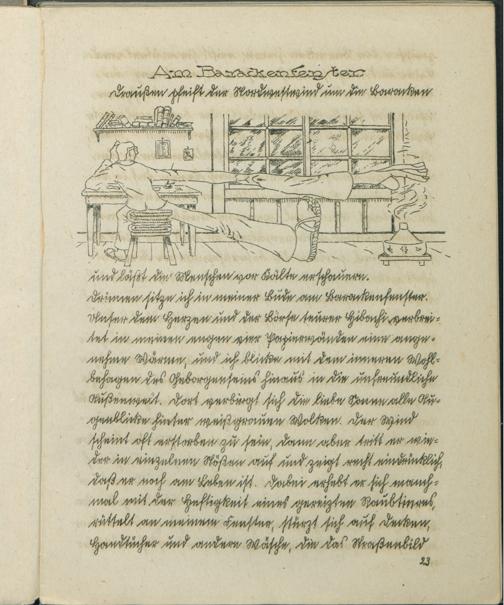 Am Barackenfenster
Draußen pfeift der Nordwestwind um die Baracken
und läßt die Menschen vor Kälte erschauern.
Drinnen sitze ich in meiner Bude am Barackenfenster.
Unser dem Herzen und der Börse teurer Hibachi verbrei-
tet in meinen engen vier Papierwänden eine ange-
nehme Wärme, und ich blicke mit dem inneren Wohl-
behagen des Geborgenseins hinaus in die unfreundliche
Außenwelt. Dort verbirgt sich die liebe Sonne alle Au-
genblicke hinter weißgrauen Wolken. Der Wind
scheint oft erstorben zu sein, dann aber tritt er wie-
der in einzelnen Stößen auf und zeigt recht eindrücklich,
daß er noch am Leben ist. Dabei erhebt er sich manch-
mal mit der Heftigkeit eines gereizten Raubtieres,
rüttelt an meinem Fenster, stürzt sich auf Decken,
Handtücher und andere Wäsche, die das Straßenbild
23